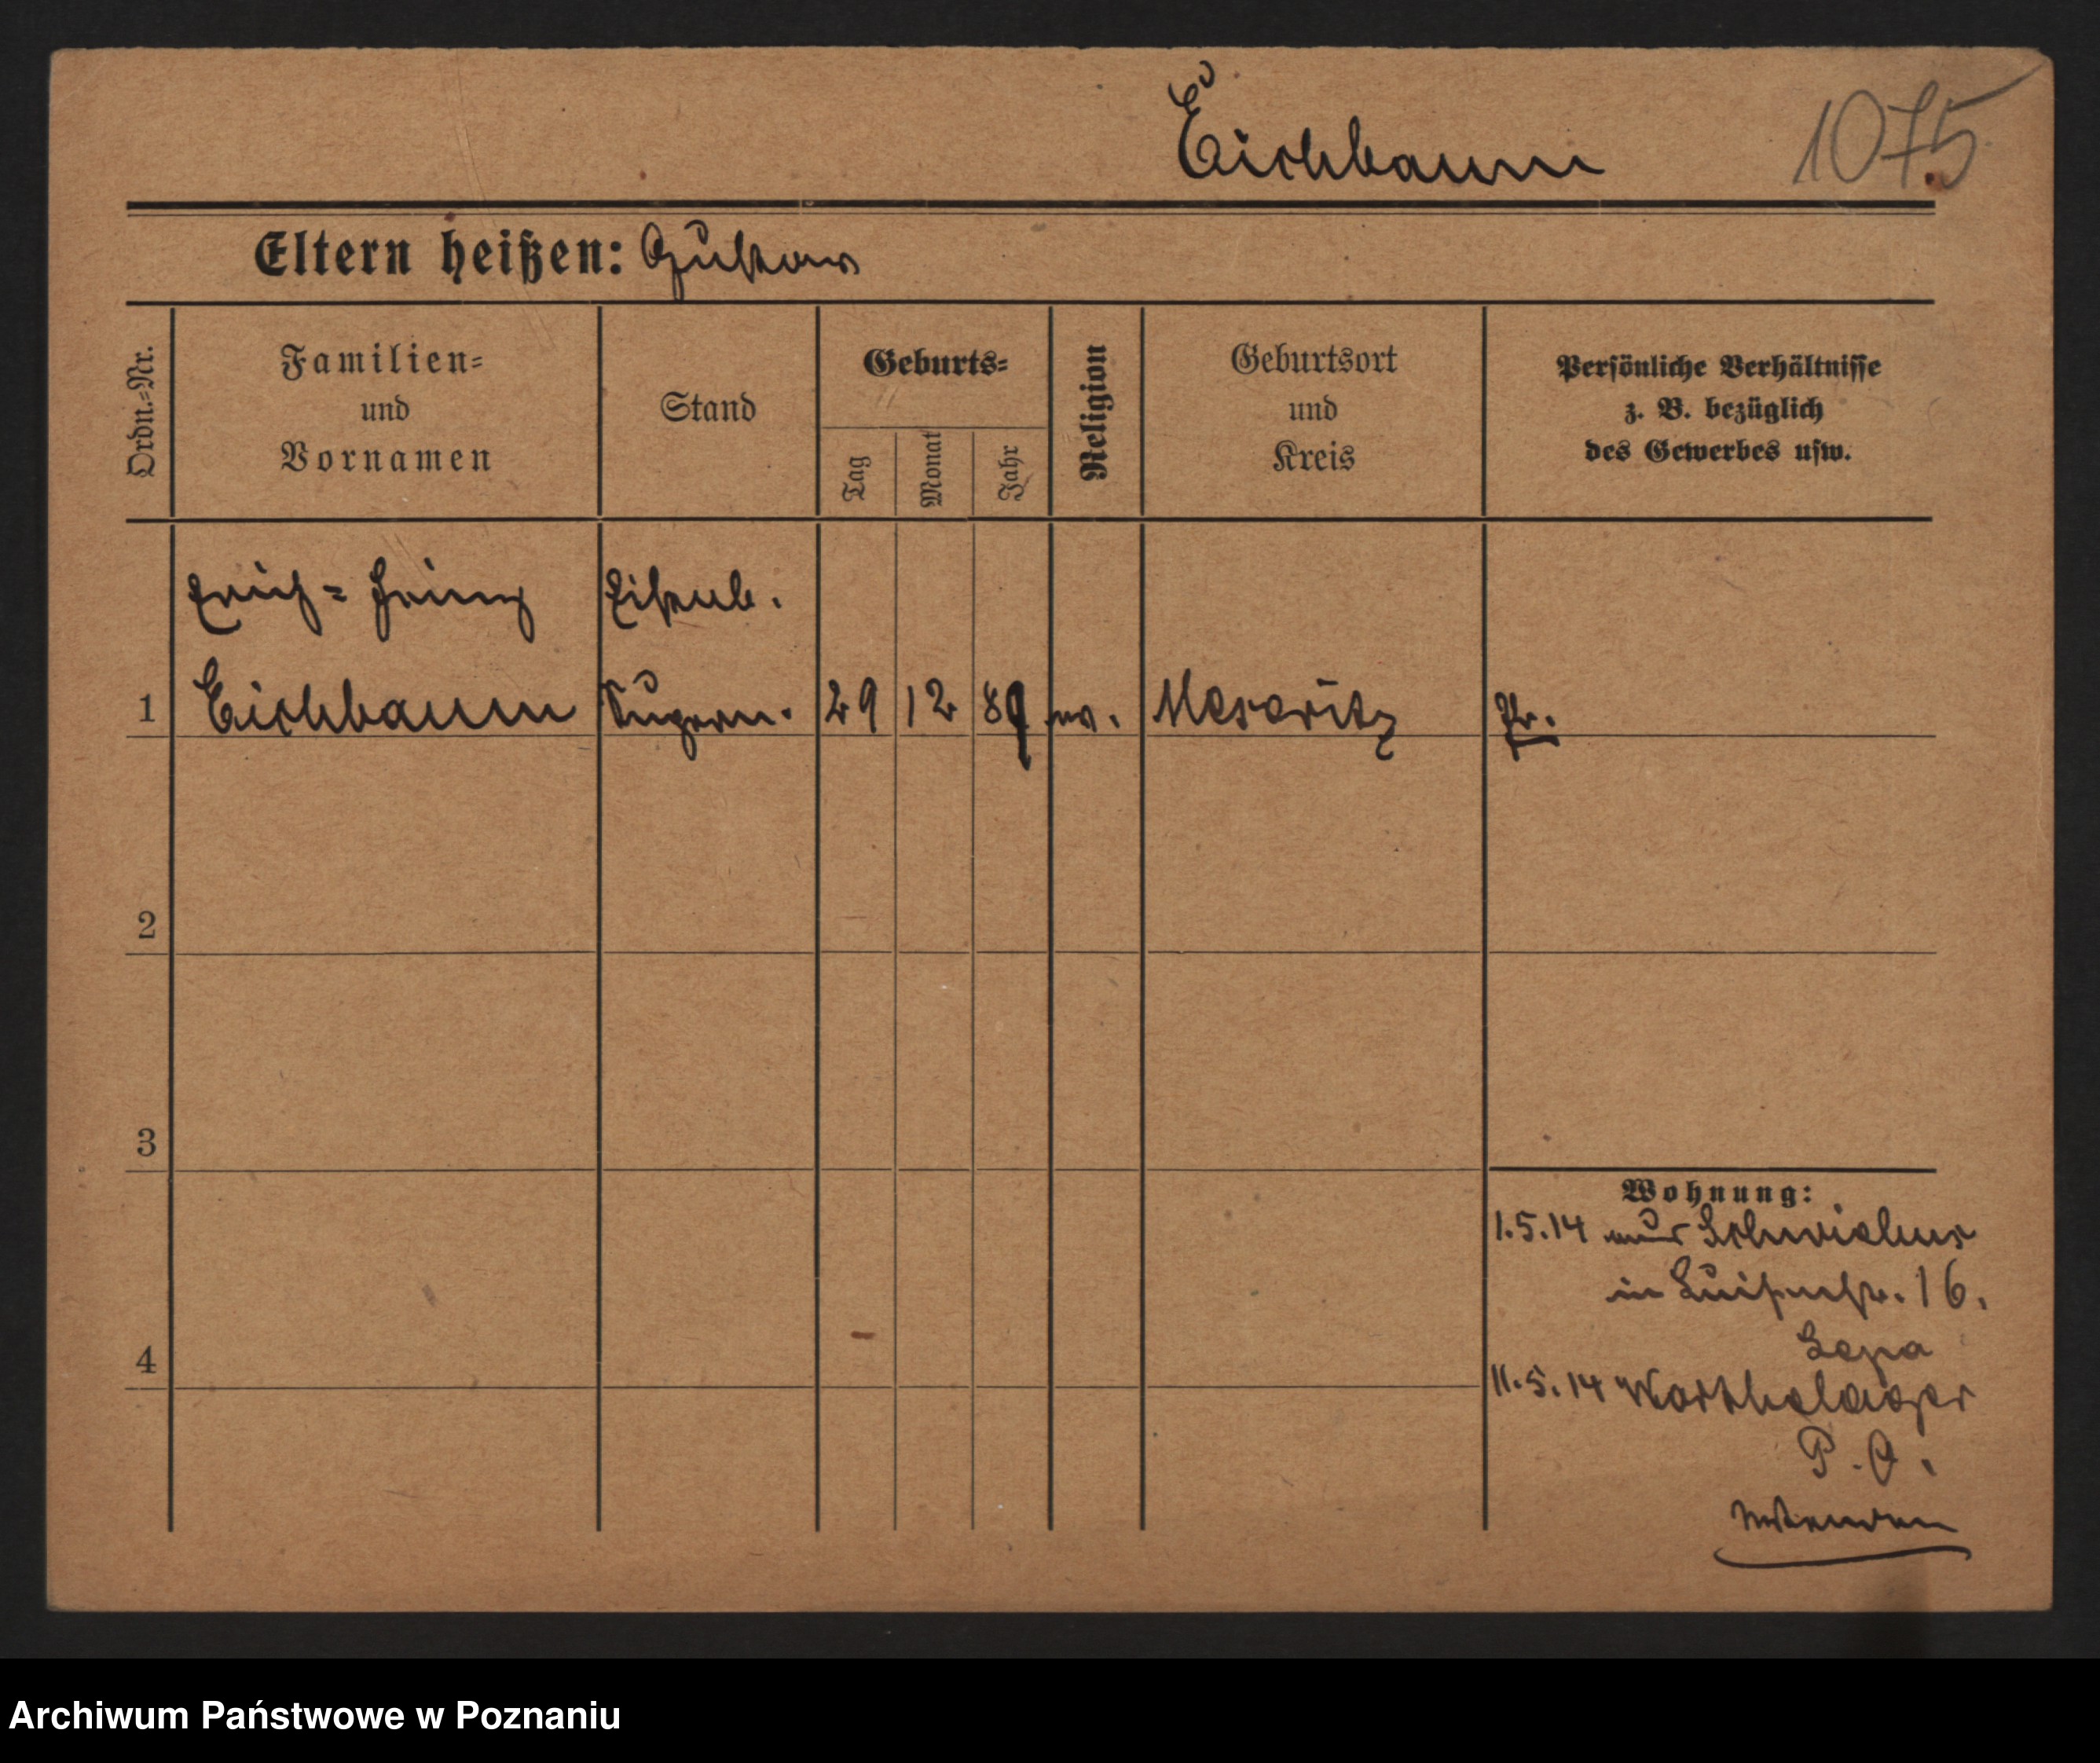 Eichbaum 1075
Eltern heißen: Gustav
Ordn.=Nr.
Familien=
und
Vornamen
Stand
Geburts=
Tag
Monat
Jahr
Religion
Geburtsort
und
Kreis
Persönliche Verhältnisse
z. B. bezüglich
des Gewerbes usw.
Erich = Eisenb.
1 Eichbaum Supern. 29 12 89 ev. Meseritz Pr.
2
3
4
Wohnung:
1.5.14 aus Schwiebus
in Luisenstr. 16.
11.5.14 Warthelager
P. O.
Archiwum Państwowe w Poznaniu